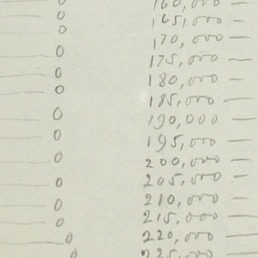 0 160,000 —
0 165,000 —
0 170,000 —
0 175,000 —
0 180,000 —
0 185,000 —
0 190,000 —
0 195,000 —
0 200,000 —
0 205,000 —
0 210,000 —
0 215,000 —
0 220,000 —
0 225,000 —